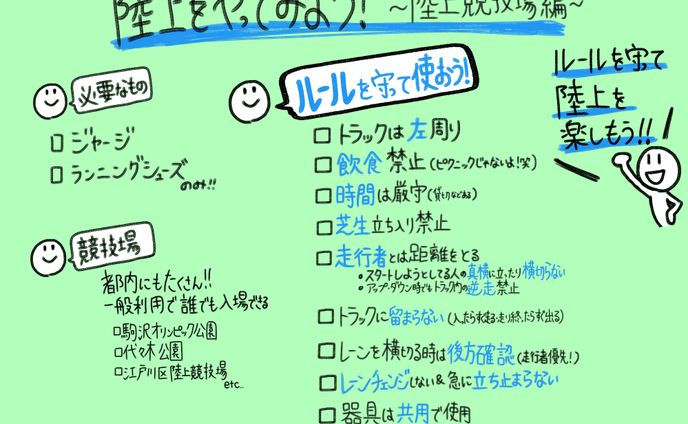 陸上をやってみよう! ~陸上競技場編~
必要なもの
□ ジャージ
□ ランニングシューズ
のみ!!
競技場
都内にもたくさん!!
一般利用で誰でも入場できる
□駒沢オリンピック公園
□代々木公園
□江戸川区陸上競技場
etc...
ルールを守って使おう!
□ トラックは左周り
□ 飲食禁止(ピクニックじゃないよ!笑)
□ 時間は厳守(貸切などある)
□ 芝生立ち入り禁止
□ 走行者とは距離をとる
• スタートしようとしてる人の真横に立ったり横切らない
• アップ・ダウン時でもトラック内の逆走禁止
□ トラックに留まらない(入ったらすぐ走る、走り終わったらすぐ出る)
□ レーンを横切る時は後方確認(走行者優先!)
□ レーンチェンジしない&急に立ち止まらない
□ 器具は共用で使用
ルールを守って
陸上を
楽しもう!!